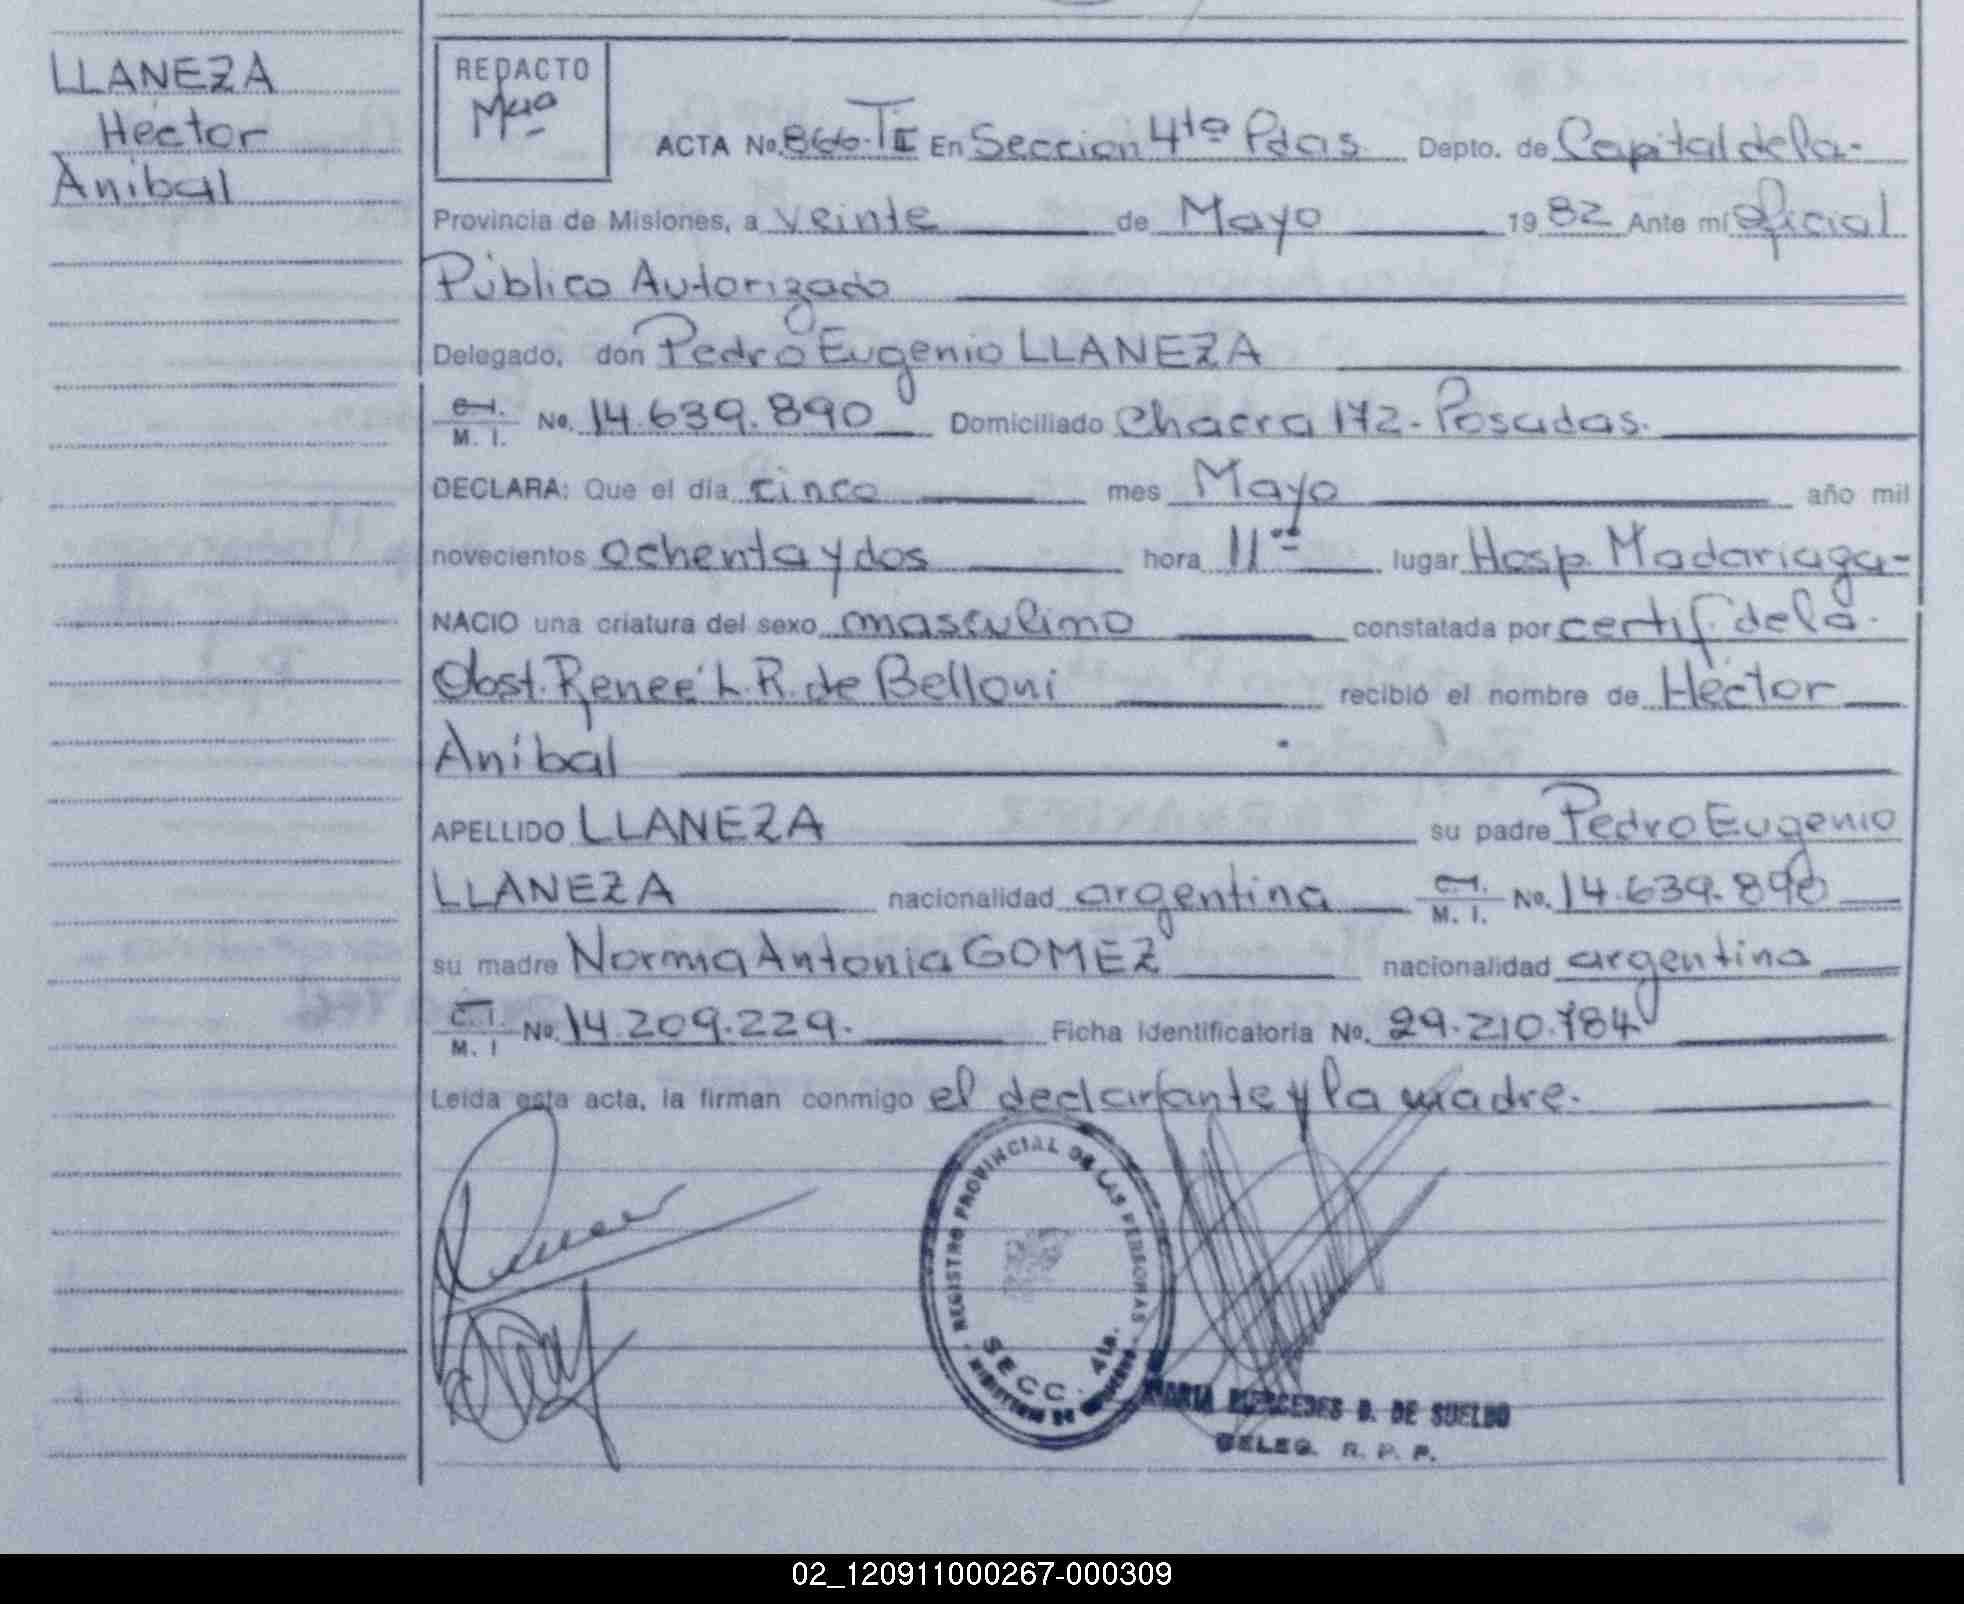 LLANEZA
Héctor
Aníbal
REDACTO
ACTA No. 866 - T II En Sección 4ta Pdas. Depto. de Capital de la-
Provincia de Misiones, a veinte de Mayo 1982 Ante mí Oficial
Público Autorizado
Delegado, don Pedro Eugenio LLANEZA
C.I. M. I. No. 14.639.890 Domiciliado Chacra 172 - Posadas.
DECLARA: Que el día cinco mes Mayo año mil
novecientos ochenta y dos hora 11 lugar Hosp. Madariaga-
NACIO una criatura del sexo masculino constatada por certif. de la-
Obst. Reneé L. R. de Belloni recibió el nombre de Héctor
Aníbal
APELLIDO LLANEZA su padre Pedro Eugenio
LLANEZA nacionalidad argentina C.I. M. I. No. 14.639.890
su madre Norma Antonia GOMEZ nacionalidad argentina
C. I. M. I No. 14.209.229. Ficha Identificatoria No. 29.210.784
Leida esta acta, la firman conmigo el declarante y la madre.
REGISTRO PROVINCIAL DE LAS PERSONAS
SECC. 4ta.
MINISTERIO DE GOBIERNO
MARIA MERCEDES D. DE SUELDO
DELEG. R. P. P.
02_120911000267-000309